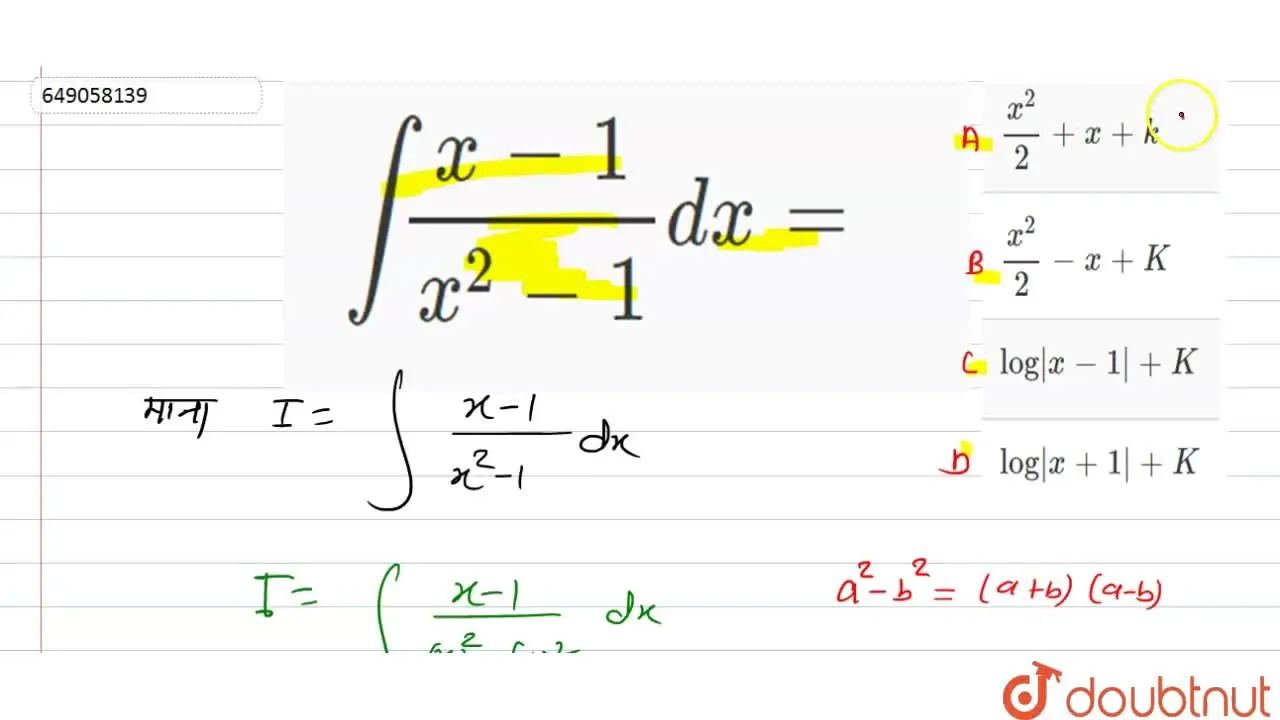 649058139
∫ x − 1 / x² − 1 dx =
A x²/2 + x + k
B x²/2 − x + K
C log|x − 1| + K
D log|x + 1| + K
माना I = ∫ x-1 / x²-1 dx
I = ∫ x-1 / dx
a²-b² = (a+b) (a-b)
doubtnut